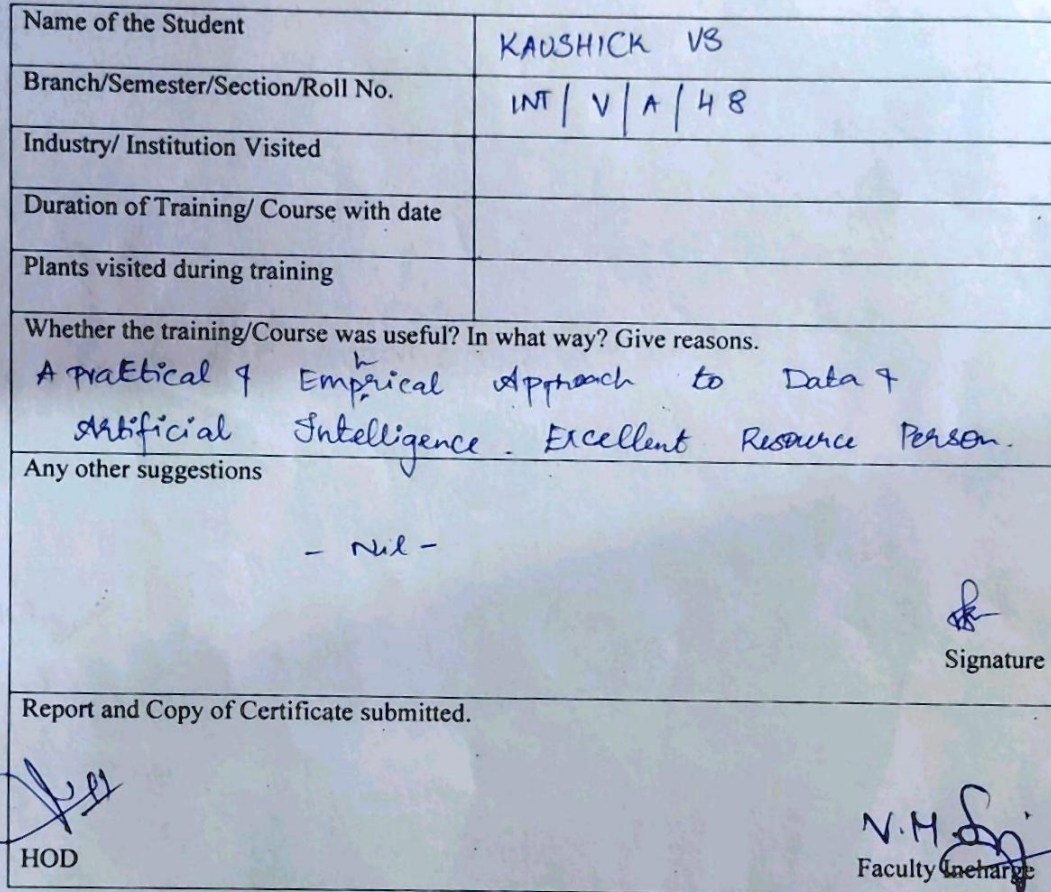 Name of the Student
KAUSHICK VS
Branch/Semester/Section/Roll No.
INT / V / A / 48
Industry/ Institution Visited
Duration of Training/ Course with date
Plants visited during training
Whether the training/Course was useful? In what way? Give reasons.
A practical & Emphrical Approach to Data &
Artificial Intelligence. Excellent Resource Person.
Any other suggestions
- Nil -
Signature
Report and Copy of Certificate submitted.
N.M.
HOD
Faculty Incharge